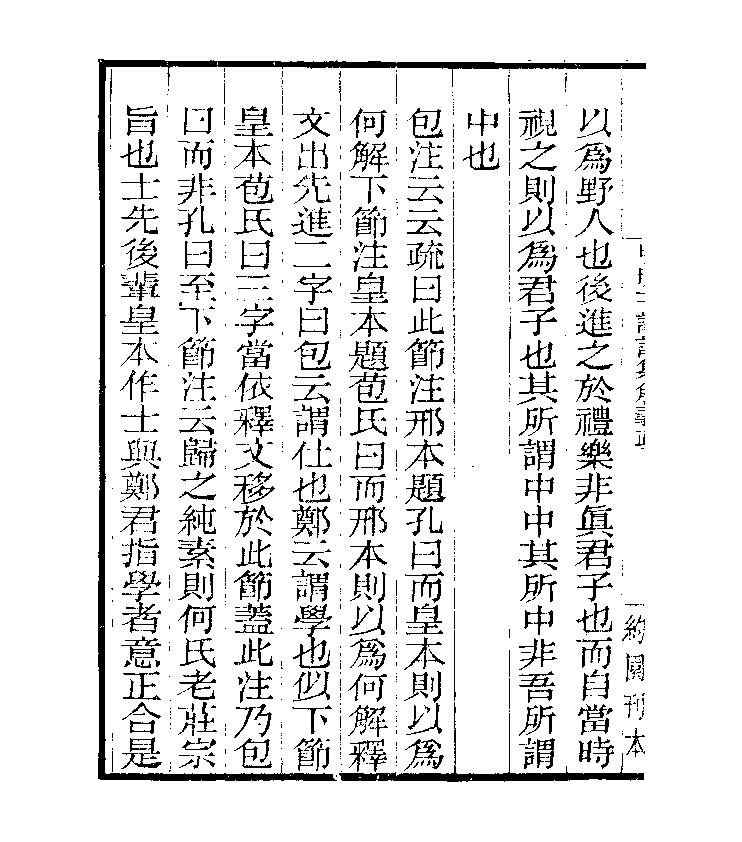 以為野人也後進之於禮樂非眞君子也而自當時
視之則以為君子也其所謂中中其所中非吾所謂
中也
包注云云疏曰此節注邢本題孔曰而皇本則以為
何解下節注皇本題苞氏曰而邢本則以為何解釋
文出先進二字曰包云謂仕也鄭云謂學也似下節
皇本苞氏曰三字當依釋文移於此節蓋此注乃包
曰而非孔曰至下節注云歸之純素則何氏老莊宗
旨也士先後輩皇本作士與鄭君指學者意正合是
約園刊本